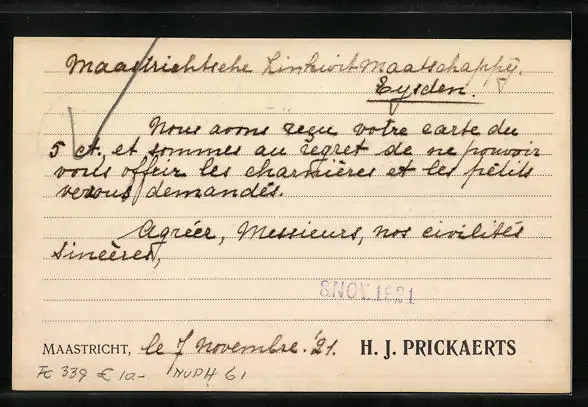 Maastrichtsche Zinkwit Maatschappÿ.
Eysden.
Nous avons reçu votre carte du
5 ct. et sommes au regret de ne pouvoir
vous offrir les charnières et les petits
verous demandés.
Agréer, Messieurs, nos civilités
sincères,
8 NOV. 1921
MAASTRICHT, le 7 Novembre. '21. H. J. PRICKAERTS
Fc 339 € 10.- NVPH 61